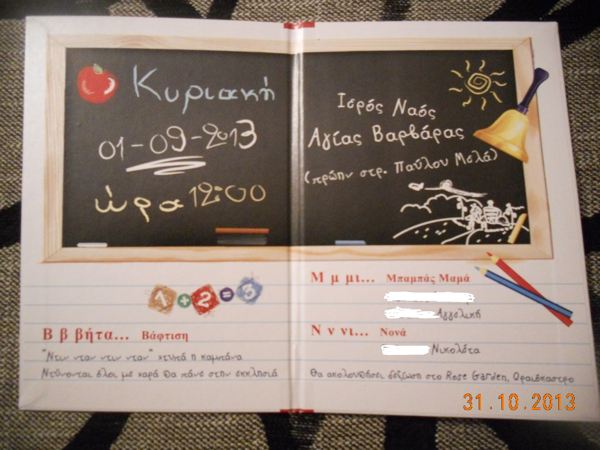 Κυριακή
01-09-2013
ώρα 12:00
Ιερός Ναός
Αγίας Βαρβάρας
(πρώην στρ. Παύλου Μελά)
1+2=3
Β β βήτα... Βάφτιση
"Ντιν νταν ντιν νταν" χτυπά η καμπάνα
Ντύνονται όλοι με χαρά θα πάνε στην εκκλησιά
Μ μ μι... Μπαμπάς Μαμά
Αγγελική
Ν ν νι... Νονά
Νικολέτα
Θα ακολουθήσει δεξίωση στο Rose Garden, Ωραιόκαστρο
31.10.2013